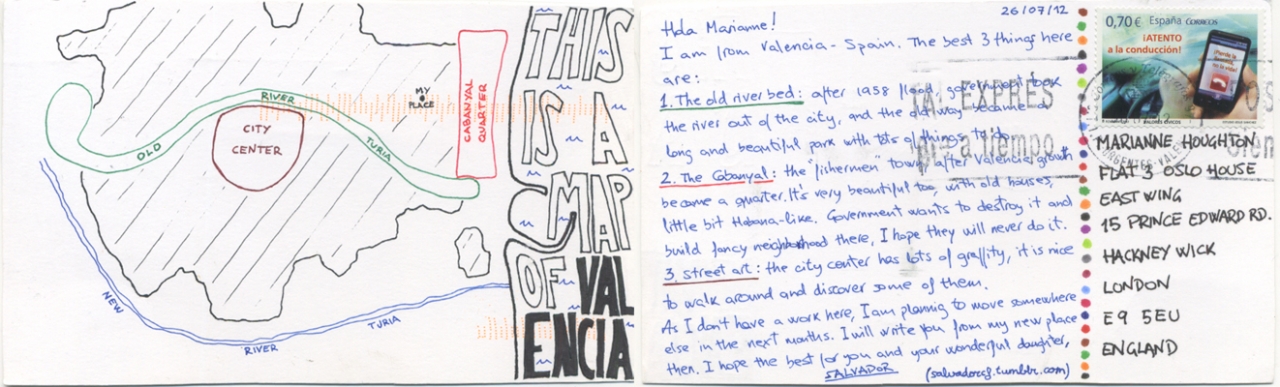 THIS
IS A
MAP
OF VAL
ENCIA
MY
PLACE
CABANYAL
QUARTER
RIVER
CITY
CENTER
OLD
TURIA
NEW
RIVER
TURIA
26/07/12
Hola Marianne!
I am from Valencia - Spain. The best 3 things here
are:
1. The old river bed: after 1958 flood, government took
the river out of the city, and the old way became a
long and beautiful park with lots of things to do.
2. The Cabanyal: the "fishermen" town, after Valencia growth
became a quarter. It's very beautiful too, with old houses,
little bit Habana-like. Government wants to destroy it and
build fancy neighborhood there, I hope they will never do it.
3. street art: the city center has lots of graffity, it is nice
to walk around and discover some of them.
As I don't have a work here, I am plannig to move somewhere
else in the next months. I will write you from my new place
then. I hope the best for you and your wonderful daughter,
SALVADOR
(salvadorccf.tumblr.com)
0,70 € España CORREOS
¡ATENTO
a la conducción!
EXPRES
a tiempo
MARIANNE HOUGHTON
FLAT 3 OSLO HOUSE
EAST WING
15 PRINCE EDWARD RD.
HACKNEY WICK
LONDON
E9 5EU
ENGLAND